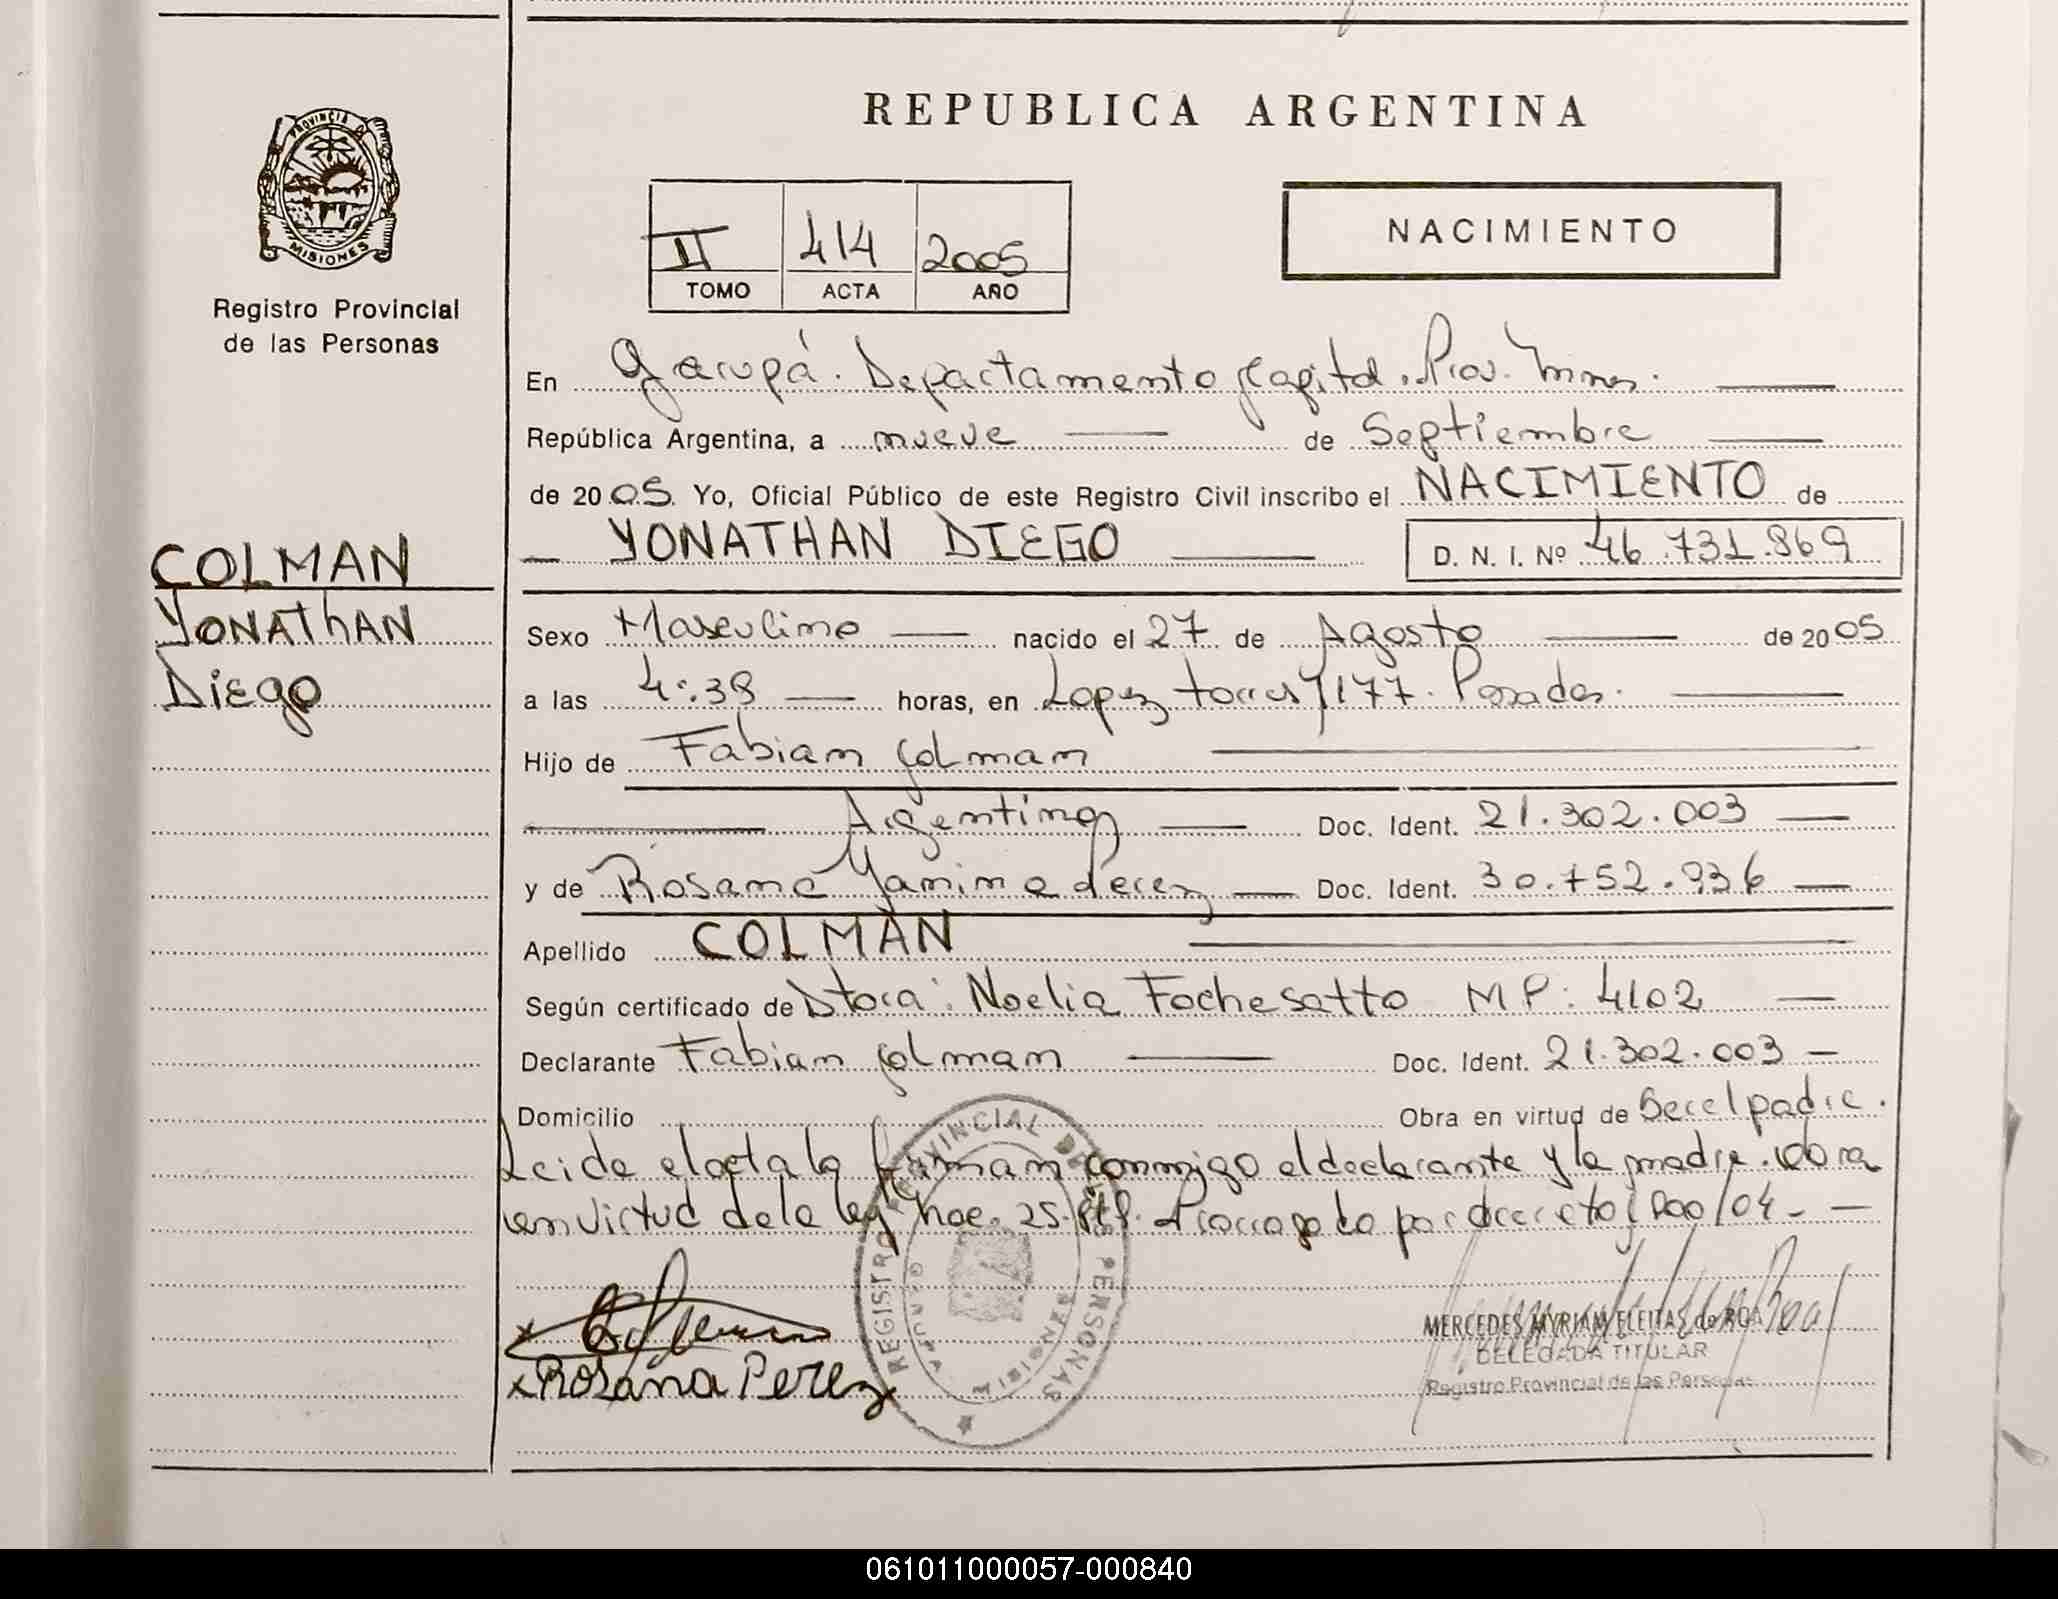 REPUBLICA ARGENTINA
PROVINCIA D
MISIONES
Registro Provincial
de las Personas
II 414 2005
TOMO ACTA AÑO
NACIMIENTO
En Garupá. Departamento Capital. Prov. Mnes.
República Argentina, a nueve de Septiembre
de 2005. Yo, Oficial Público de este Registro Civil inscribo el NACIMIENTO de
YONATHAN DIEGO D. N. I. Nº 46.731.869
COLMAN
YONAThAN
Diego
Sexo Masculino nacido el 27 de Agosto de 2005
a las 4:38 horas, en Lopez torres 1177. Posadas.
Hijo de Fabian Colman
Argentino Doc. Ident. 21.302.003
y de Rosana Yanina Perez Doc. Ident. 30.752.936
Apellido COLMAN
Según certificado de Dtora: Noelia Fochesatto MP: 4102
Declarante Fabian Colman Doc. Ident. 21.302.003
Domicilio Obra en virtud de Ser el padre.
Leida el acta la firman conmigo el declarante y la madre. Obra
en virtud de la ley Nac. 25. Prorrogado por decreto /04
REGISTRO PROVINCIAL DE LAS PERSONAS
MISIONES
Rosana Perez
MERCEDES MYRIAM ELEITAS de ROA
DELEGADA TITULAR
Registro Provincial de las Personas
061011000057-000840